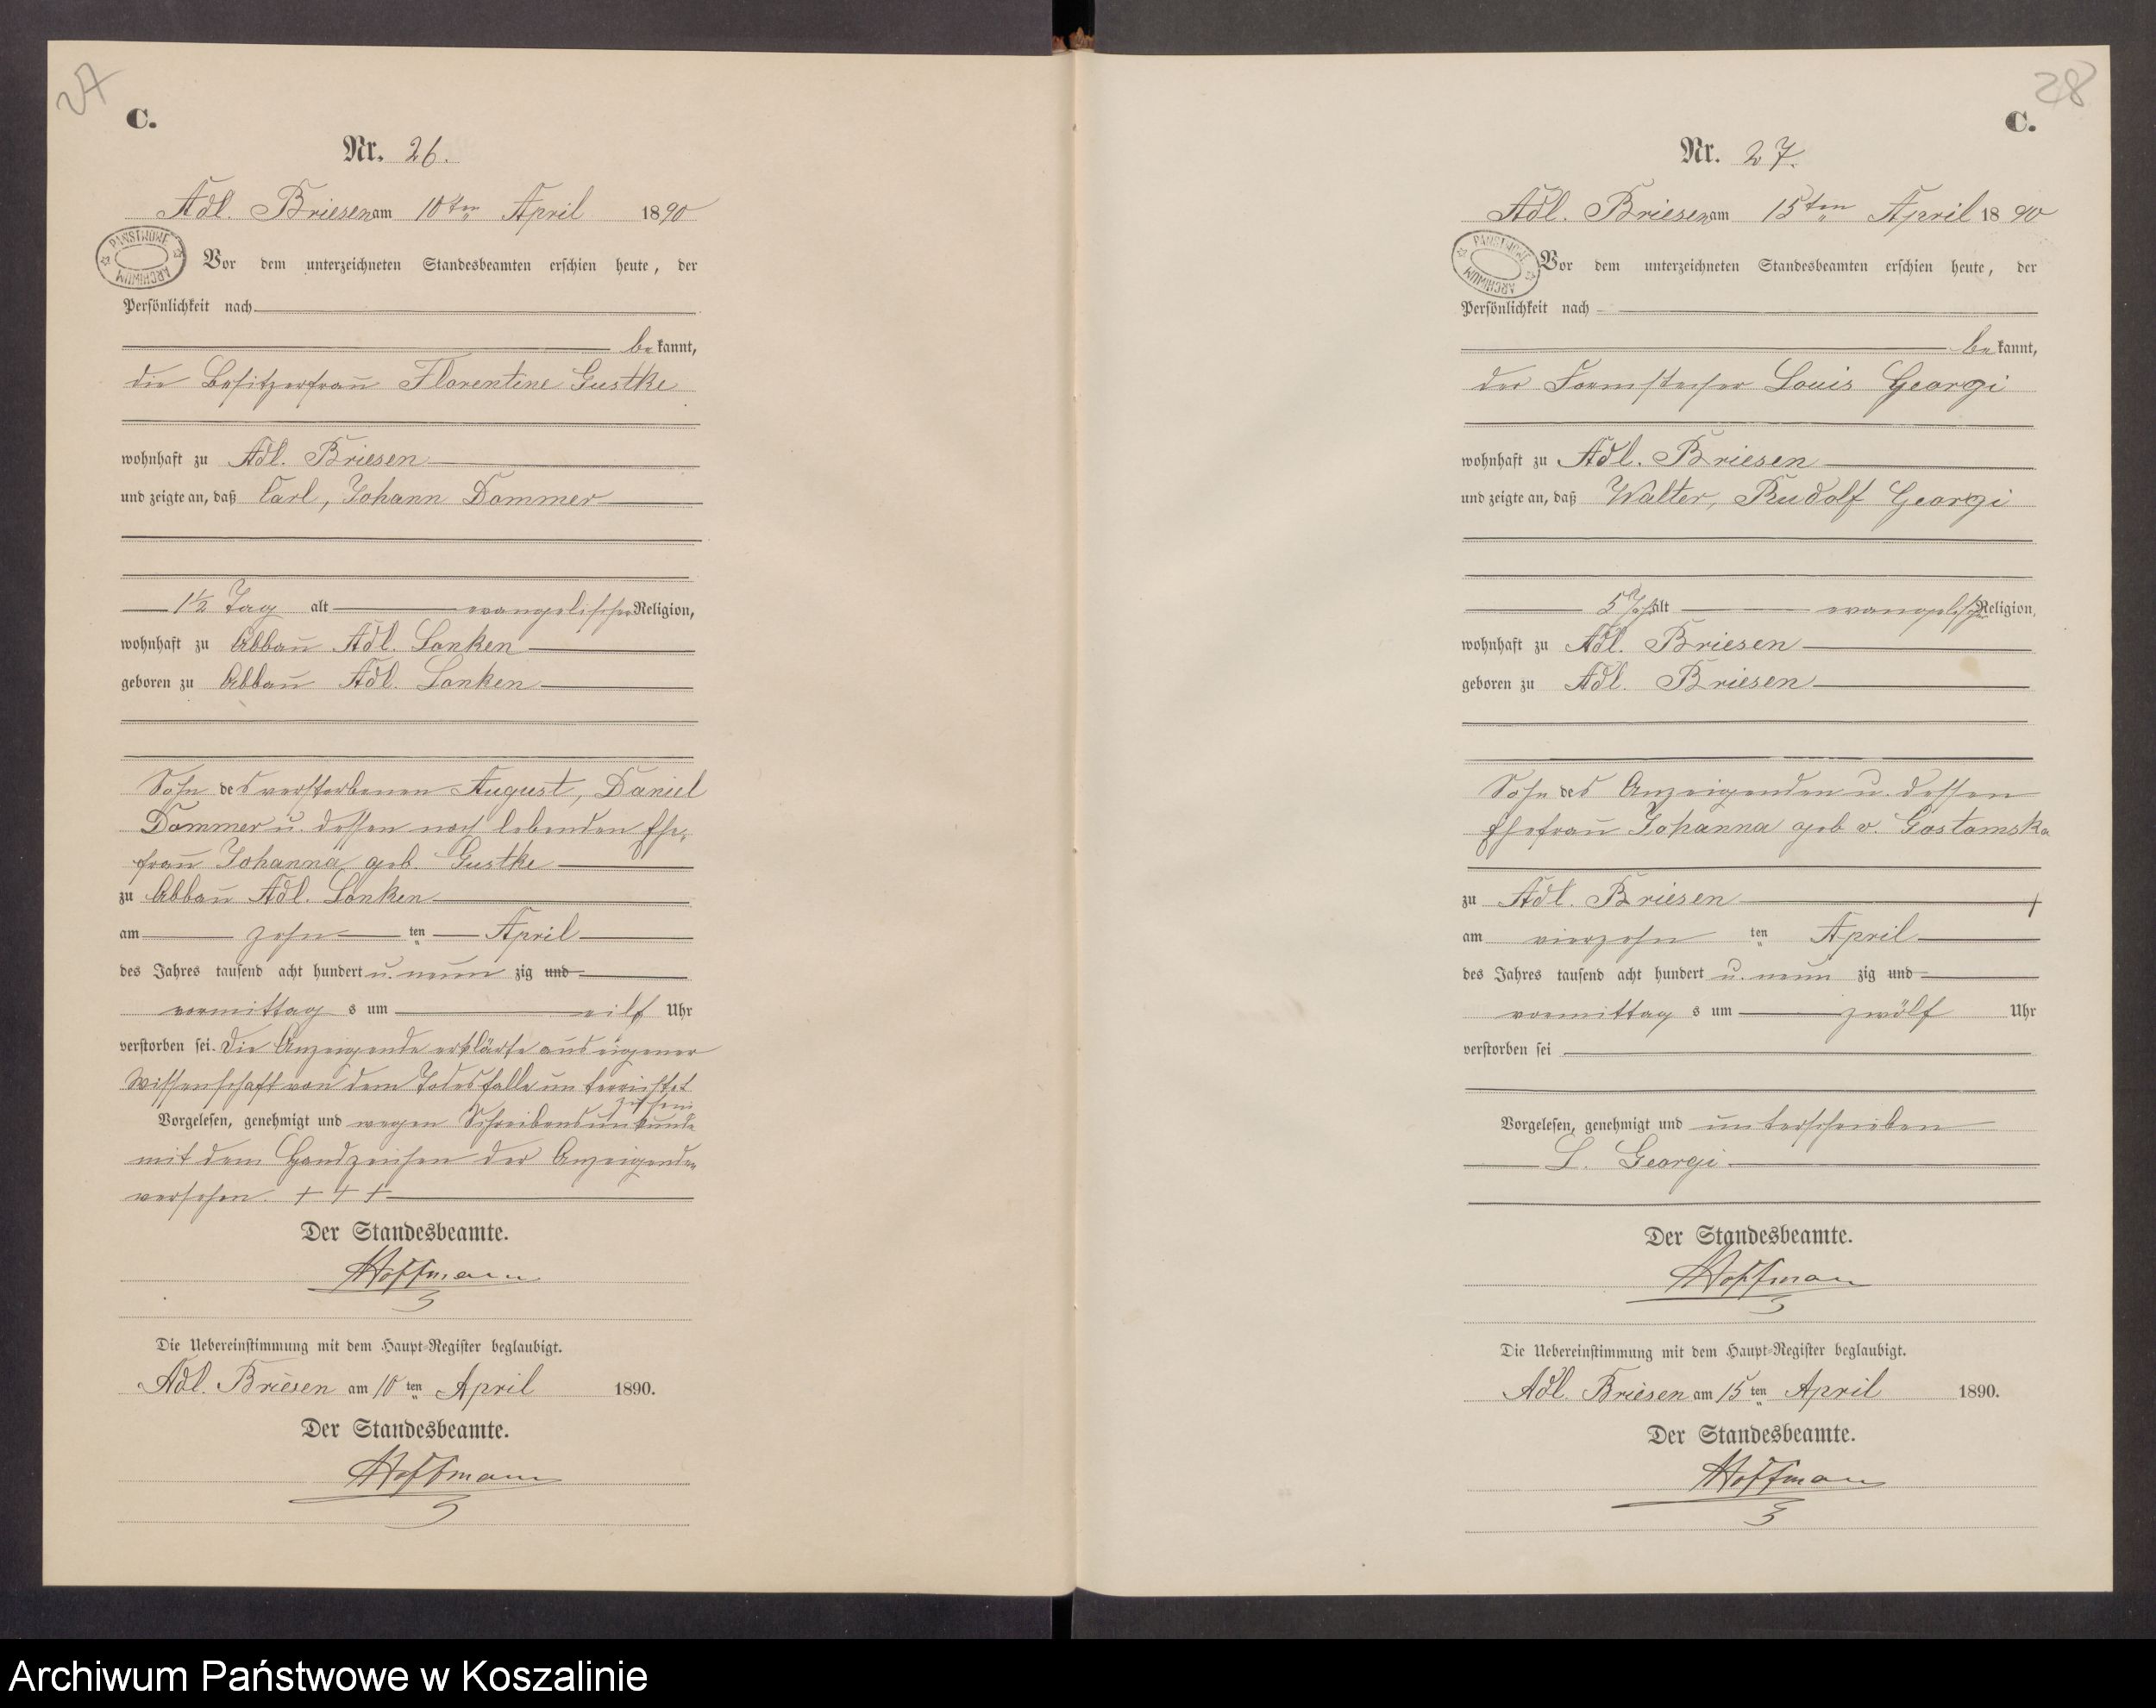 27
C.
Nr. 26.
Adl. Briesen am 10ten April 1890
PAŃSTWOWE ARCHIWUM
Vor dem unterzeichneten Standesbeamten erschien heute, der
Persönlichkeit nach
bekannt,
die Besitzerfrau Florentine Gustke
wohnhaft zu Adl. Briesen
und zeigte an, daß Carl, Johann Dommer
1½ Tag alt evangelischer Religion,
wohnhaft zu Abbau Adl. Lonken
geboren zu Abbau Adl. Lonken
Sohn des verstorbenen August, Daniel
Dommer u. dessen noch lebenden Ehe-
frau Johanna geb. Gustke
zu Abbau Adl. Lonken
am zehnten April
des Jahres tausend acht hundert u. neunzig und
vormittags um eilf Uhr
verstorben sei. Die Anzeigende erklärte aus eigener
Wissenschaft von dem Todesfalle unterrichtet
zu sein
Vorgelesen, genehmigt und wegen Schreibensunkunde
mit dem Handzeichen der Anzeigenden
versehen. + + +
Der Standesbeamte.
Hoffmann
Die Uebereinstimmung mit dem Haupt-Register beglaubigt.
Adl. Briesen am 10ten April 1890.
Der Standesbeamte.
Hoffmann
28
C.
Nr. 27.
Adl. Briesen am 15ten April 1890
PAŃSTWOWE ARCHIWUM
Vor dem unterzeichneten Standesbeamten erschien heute, der
Persönlichkeit nach
bekannt,
der Formstecher Louis Georgi
wohnhaft zu Adl. Briesen
und zeigte an, daß Walter, Rudolf Georgi
5 alt evangelischer Religion,
wohnhaft zu Adl. Briesen
geboren zu Adl. Briesen
Sohn des Anzeigenden u. dessen
Ehefrau Johanna geb v. Gostomska
zu Adl. Briesen
am vierzehnten April
des Jahres tausend acht hundert u. neunzig und
vormittags um zwölf Uhr
verstorben sei
Vorgelesen, genehmigt und unterschrieben
L. Georgi
Der Standesbeamte.
Hoffmann
Die Uebereinstimmung mit dem Haupt-Register beglaubigt.
Adl. Briesen am 15ten April 1890.
Der Standesbeamte.
Hoffmann
Archiwum Państwowe w Koszalinie